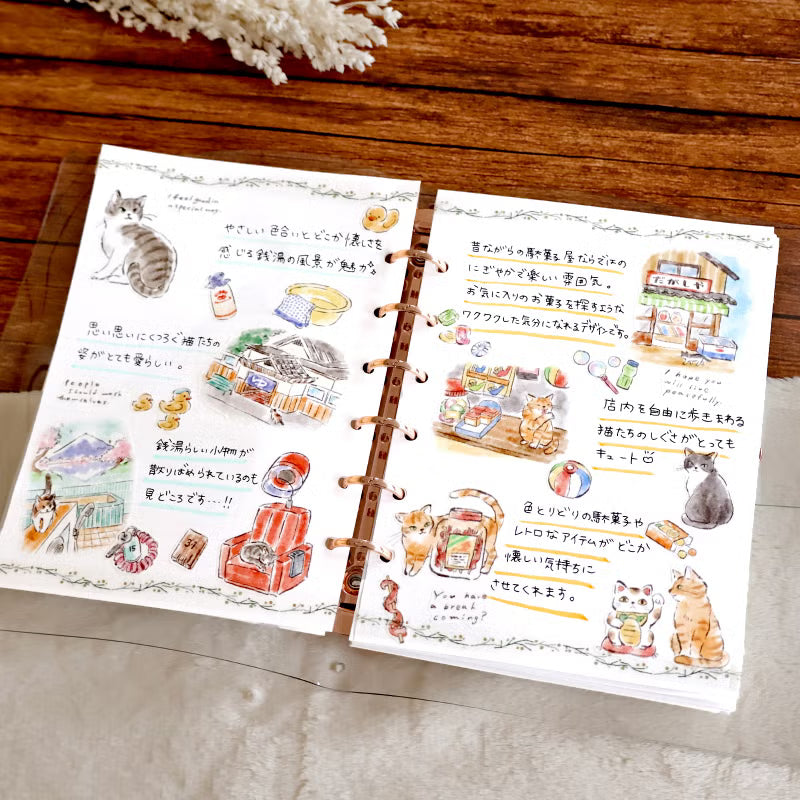 I feel good in
a special way.
やさしい色合いとどこか懐しさを
感じる銭湯の風景が魅力♪
思い思いにくつろぐ猫たちの
姿がとても愛らしい。
ゆ
people
should wash
themselves.
銭湯らしい小物が
散りばめられているのも
見どころです…!!
15
昔ながらの駄菓子屋ならではの
にぎやかで楽しい雰囲気。
お気に入りのお菓子を探すような
ワクワクした気分になれるデザインです。
だがしや
I hope you
will live
peacefully.
店内を自由に歩きまわる
猫たちのしぐさがとっても
キュート
色とりどりの駄菓子や
レトロなアイテムがどこか
懐しい気持ちに
させてくれます。
You have
a break
coming?